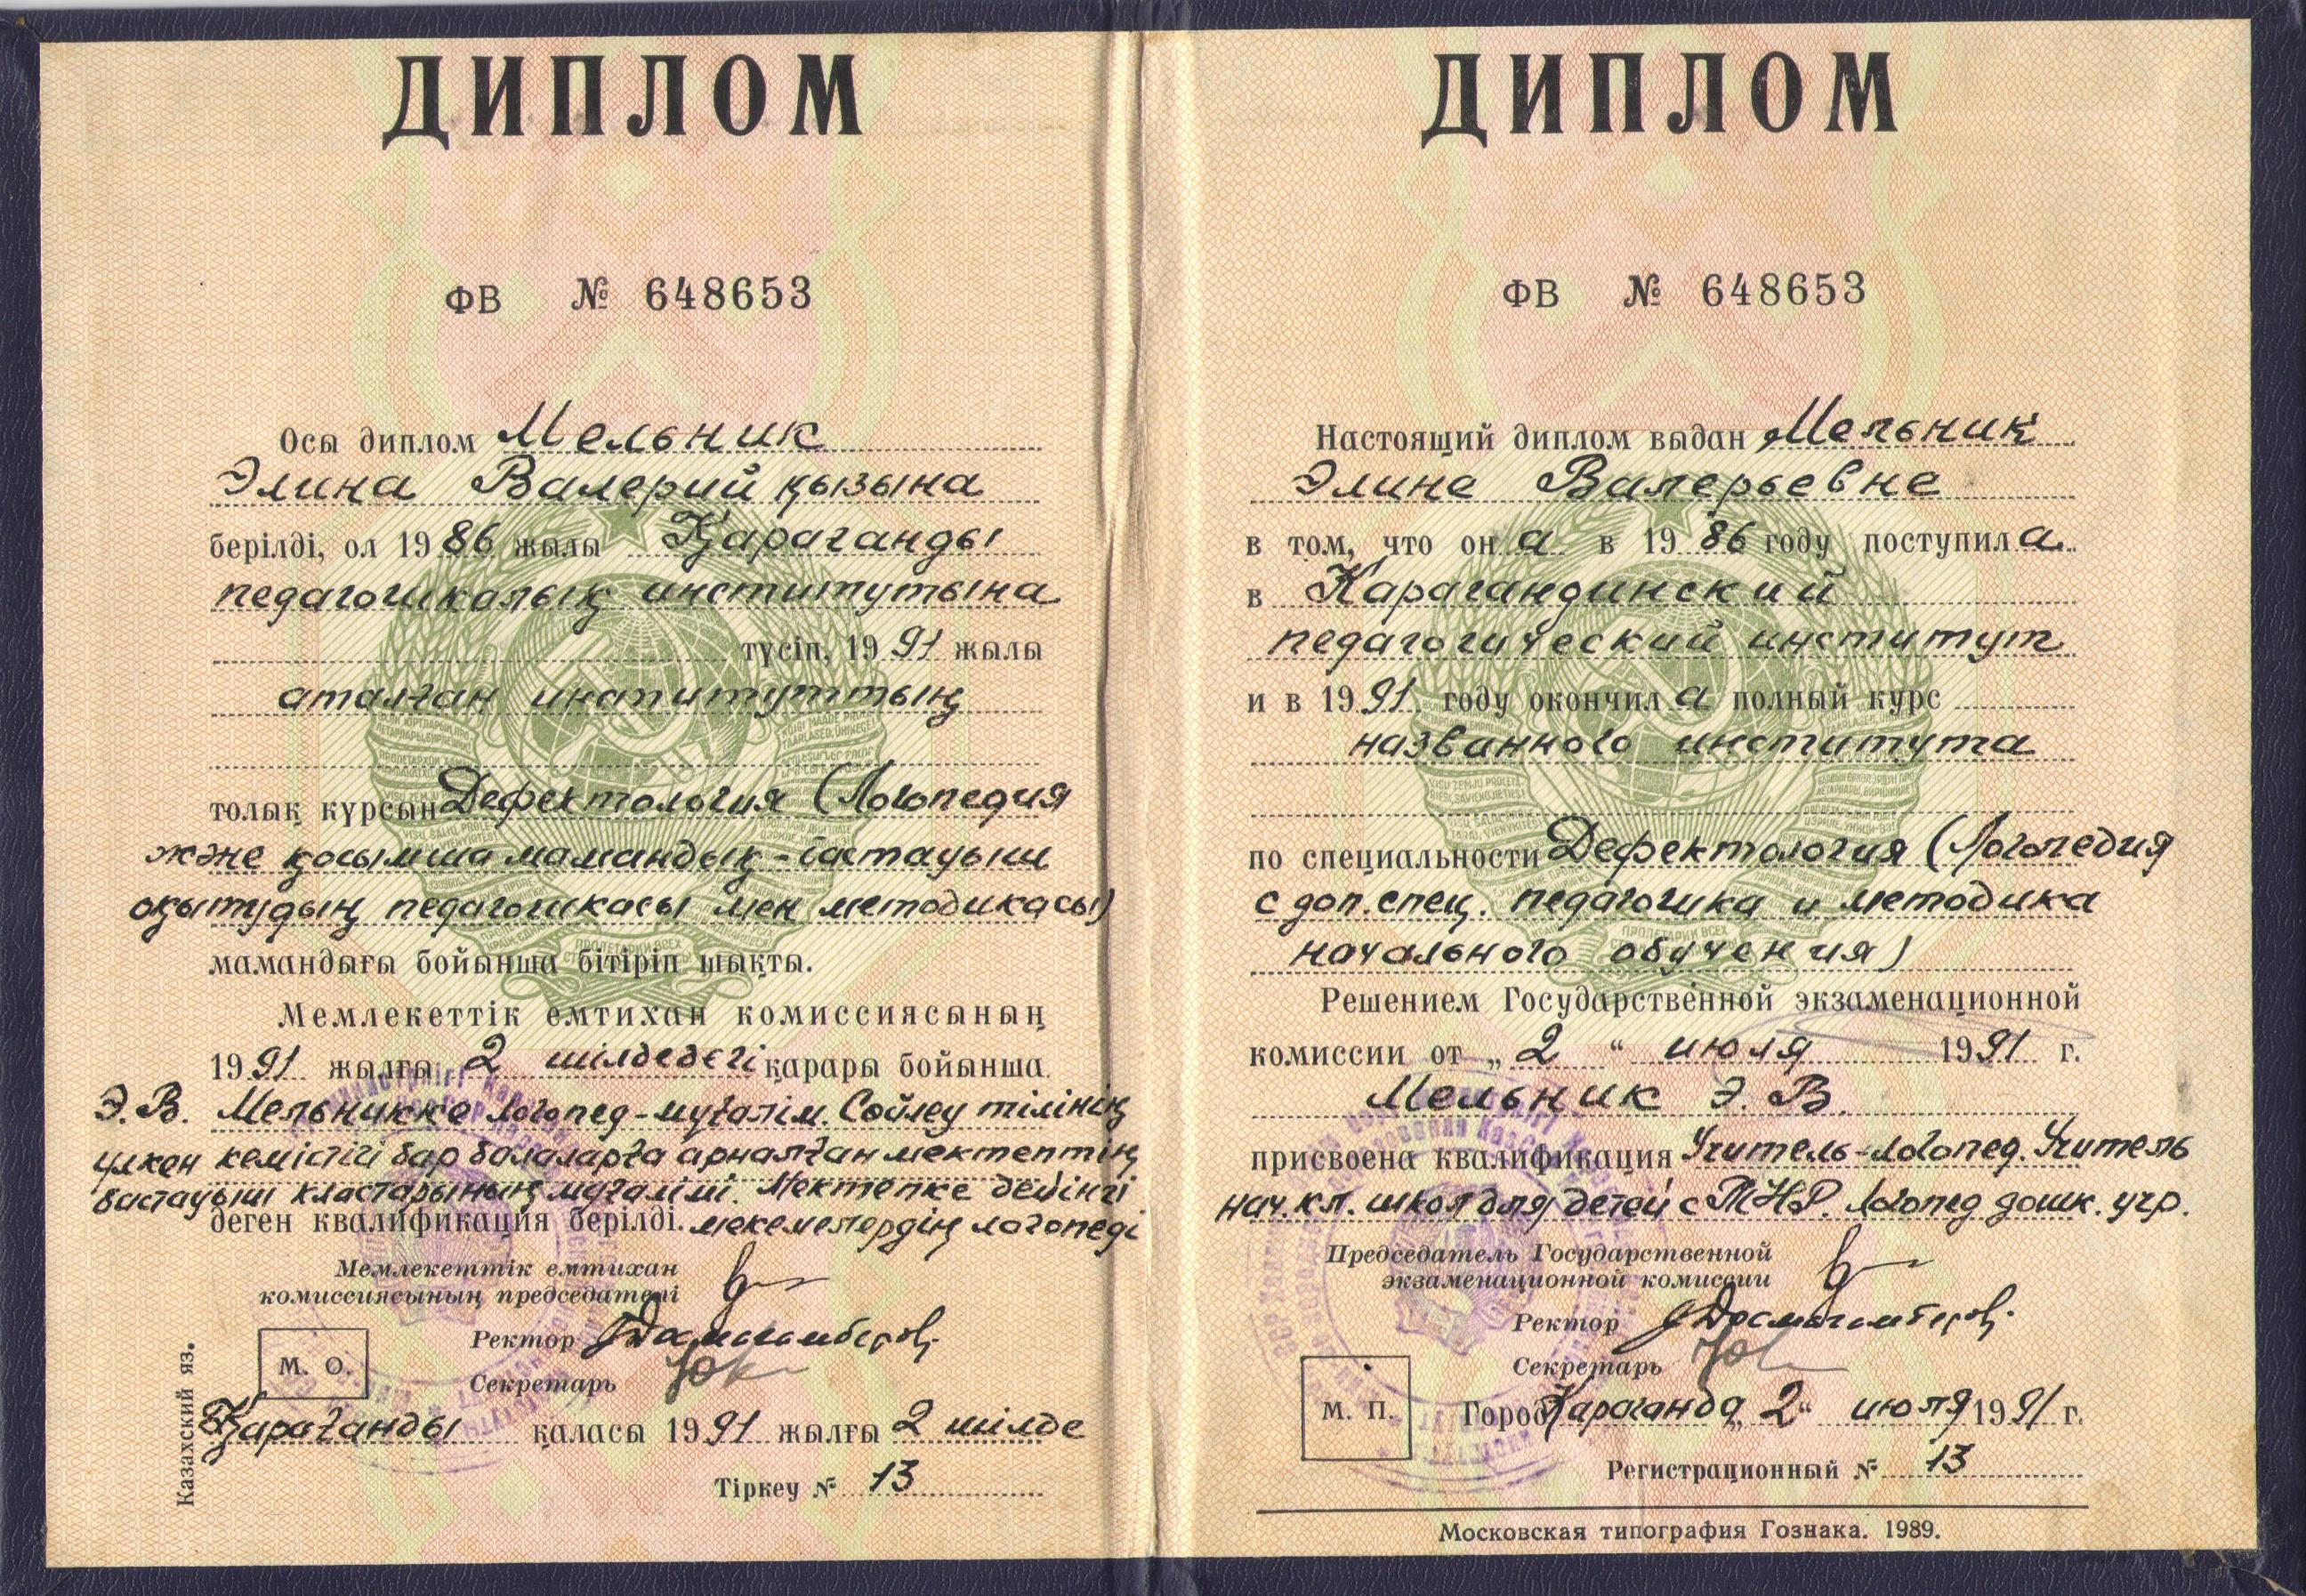 ДИПЛОМ
ФВ № 648653
Осы диплом Мельник
Элина Валерий қызына
берілді, ол 1986 жылы Қарағанды
педагогикалық институтына
түсіп, 1991 жылы
аталған институттың
толық курсын Дефектология (Логопедия
және қосымша мамандық - бастауыш
оқытудың педагогикасы мен методикасы)
мамандығы бойынша бітіріп шықты.
Мемлекеттік емтихан комиссиясының
1991 жылғы 2 шілдедегі қарары бойынша
Э.В. Мельникке логопед-мұғалім. Сөйлеу тілінің
үлкен кемістігі бар балаларға арналған мектептің
бастауыш кластарының мұғалімі. Мектепке дейінгі
деген квалификация берілді. мекемелердің логопеді
Мемлекеттік емтихан
комиссиясының председателі
Ректор
М. О.
Секретарь
Қарағанды қаласы 1991 жылғы 2 шілде
Тіркеу № 13
Казахский яз.
ДИПЛОМ
ФВ № 648653
Настоящий диплом выдан Мельник
Элине Валерьевне
в том, что она в 1986 году поступила
в Карагандинский
педагогический институт
и в 1991 году окончила полный курс
названного института
по специальности Дефектология (Логопедия
с доп. спец. педагогика и методика
начального обучения)
Решением Государственной экзаменационной
комиссии от „2“ июля 1991 г.
Мельник Э. В.
присвоена квалификация Учитель-логопед. Учитель
нач. кл. школ для детей с ТНР. Логопед дошк. учр.
Председатель Государственной
экзаменационной комиссии
Ректор
Секретарь
М. П.
Город Караганда „2“ июля 1991 г.
Регистрационный № 13
Московская типография Гознака. 1989.